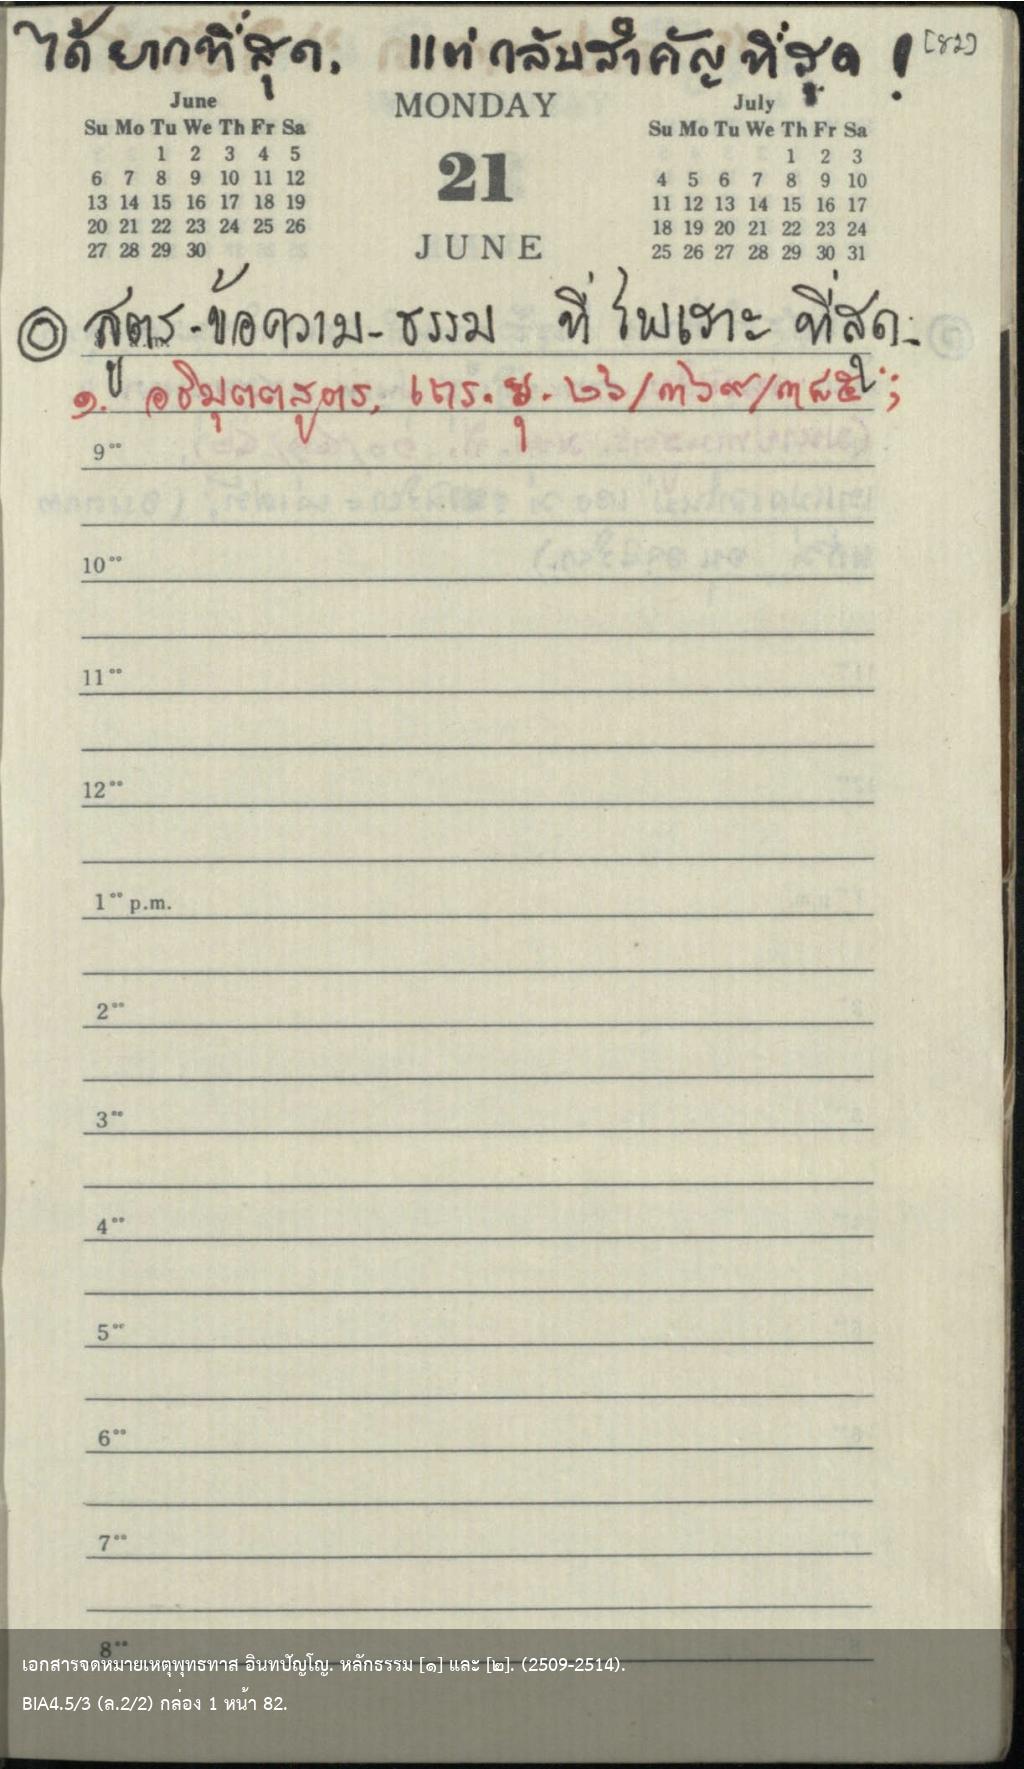 ได้ยากที่สุด. แต่กลับสำคัญที่สุด ! [๘๒]
June
Su Mo Tu We Th Fr Sa
1 2 3 4 5
6 7 8 9 10 11 12
13 14 15 16 17 18 19
20 21 22 23 24 25 26
27 28 29 30
MONDAY
21
JUNE
July
Su Mo Tu We Th Fr Sa
1 2 3
4 5 6 7 8 9 10
11 12 13 14 15 16 17
18 19 20 21 22 23 24
25 26 27 28 29 30 31
◎ สูตร-ข้อความ-ธรรม ที่ไพเราะ ที่สุด.
๑. อธิมุตตสูตร, เถร. ขุ. ๒๖/๓๖๙/๓๘๕ ;
9⁰⁰
10⁰⁰
11⁰⁰
12⁰⁰
1⁰⁰ p.m.
2⁰⁰
3⁰⁰
4⁰⁰
5⁰⁰
6⁰⁰
7⁰⁰
8⁰⁰
เอกสารจดหมายเหตุพุทธทาส อินทปัญโญ. หลักธรรม [๑] และ [๒]. (2509-2514).
BIA4.5/3 (ล.2/2) กล่อง 1 หน้า 82.